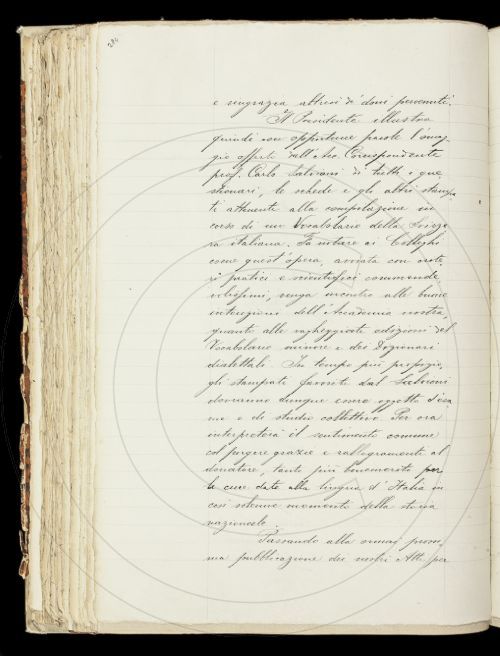 284
e ringrazia altresì de' doni pervenuti.
Il Presidente illustra
quindi con opportune parole l'omag-
gio offerto dall'Acc. Corrispondente
prof. Carlo Salvioni di tutti i que-
stionari, le schede e gli altri stampa-
ti attinenti alla compilazione in
corso di un Vocabolario della Svizze-
ra italiana. Fa notare ai Colleghi
come quest'opera, avviata con crite-
ri pratici e scientifici commende-
volissimi, venga incontro alle buone
intenzioni dell'Accademia nostra,
quanto alle vagheggiate edizioni del
Vocabolario minore e dei Dizionari
dialettali. In tempo più propizio,
gli stampati favoriti dal Salvioni
dovranno dunque essere oggetto d'esa-
me e di studio collettivo. Per ora
interpreterà il sentimento comune
col porgere grazie e rallegramenti al
donatore, tanto più benemerito per
le cure date alla lingua d'Italia in
così solenne momento della storia
nazionale.
Passando alla omai prossi-
ma pubblicazione dei nostri Atti per